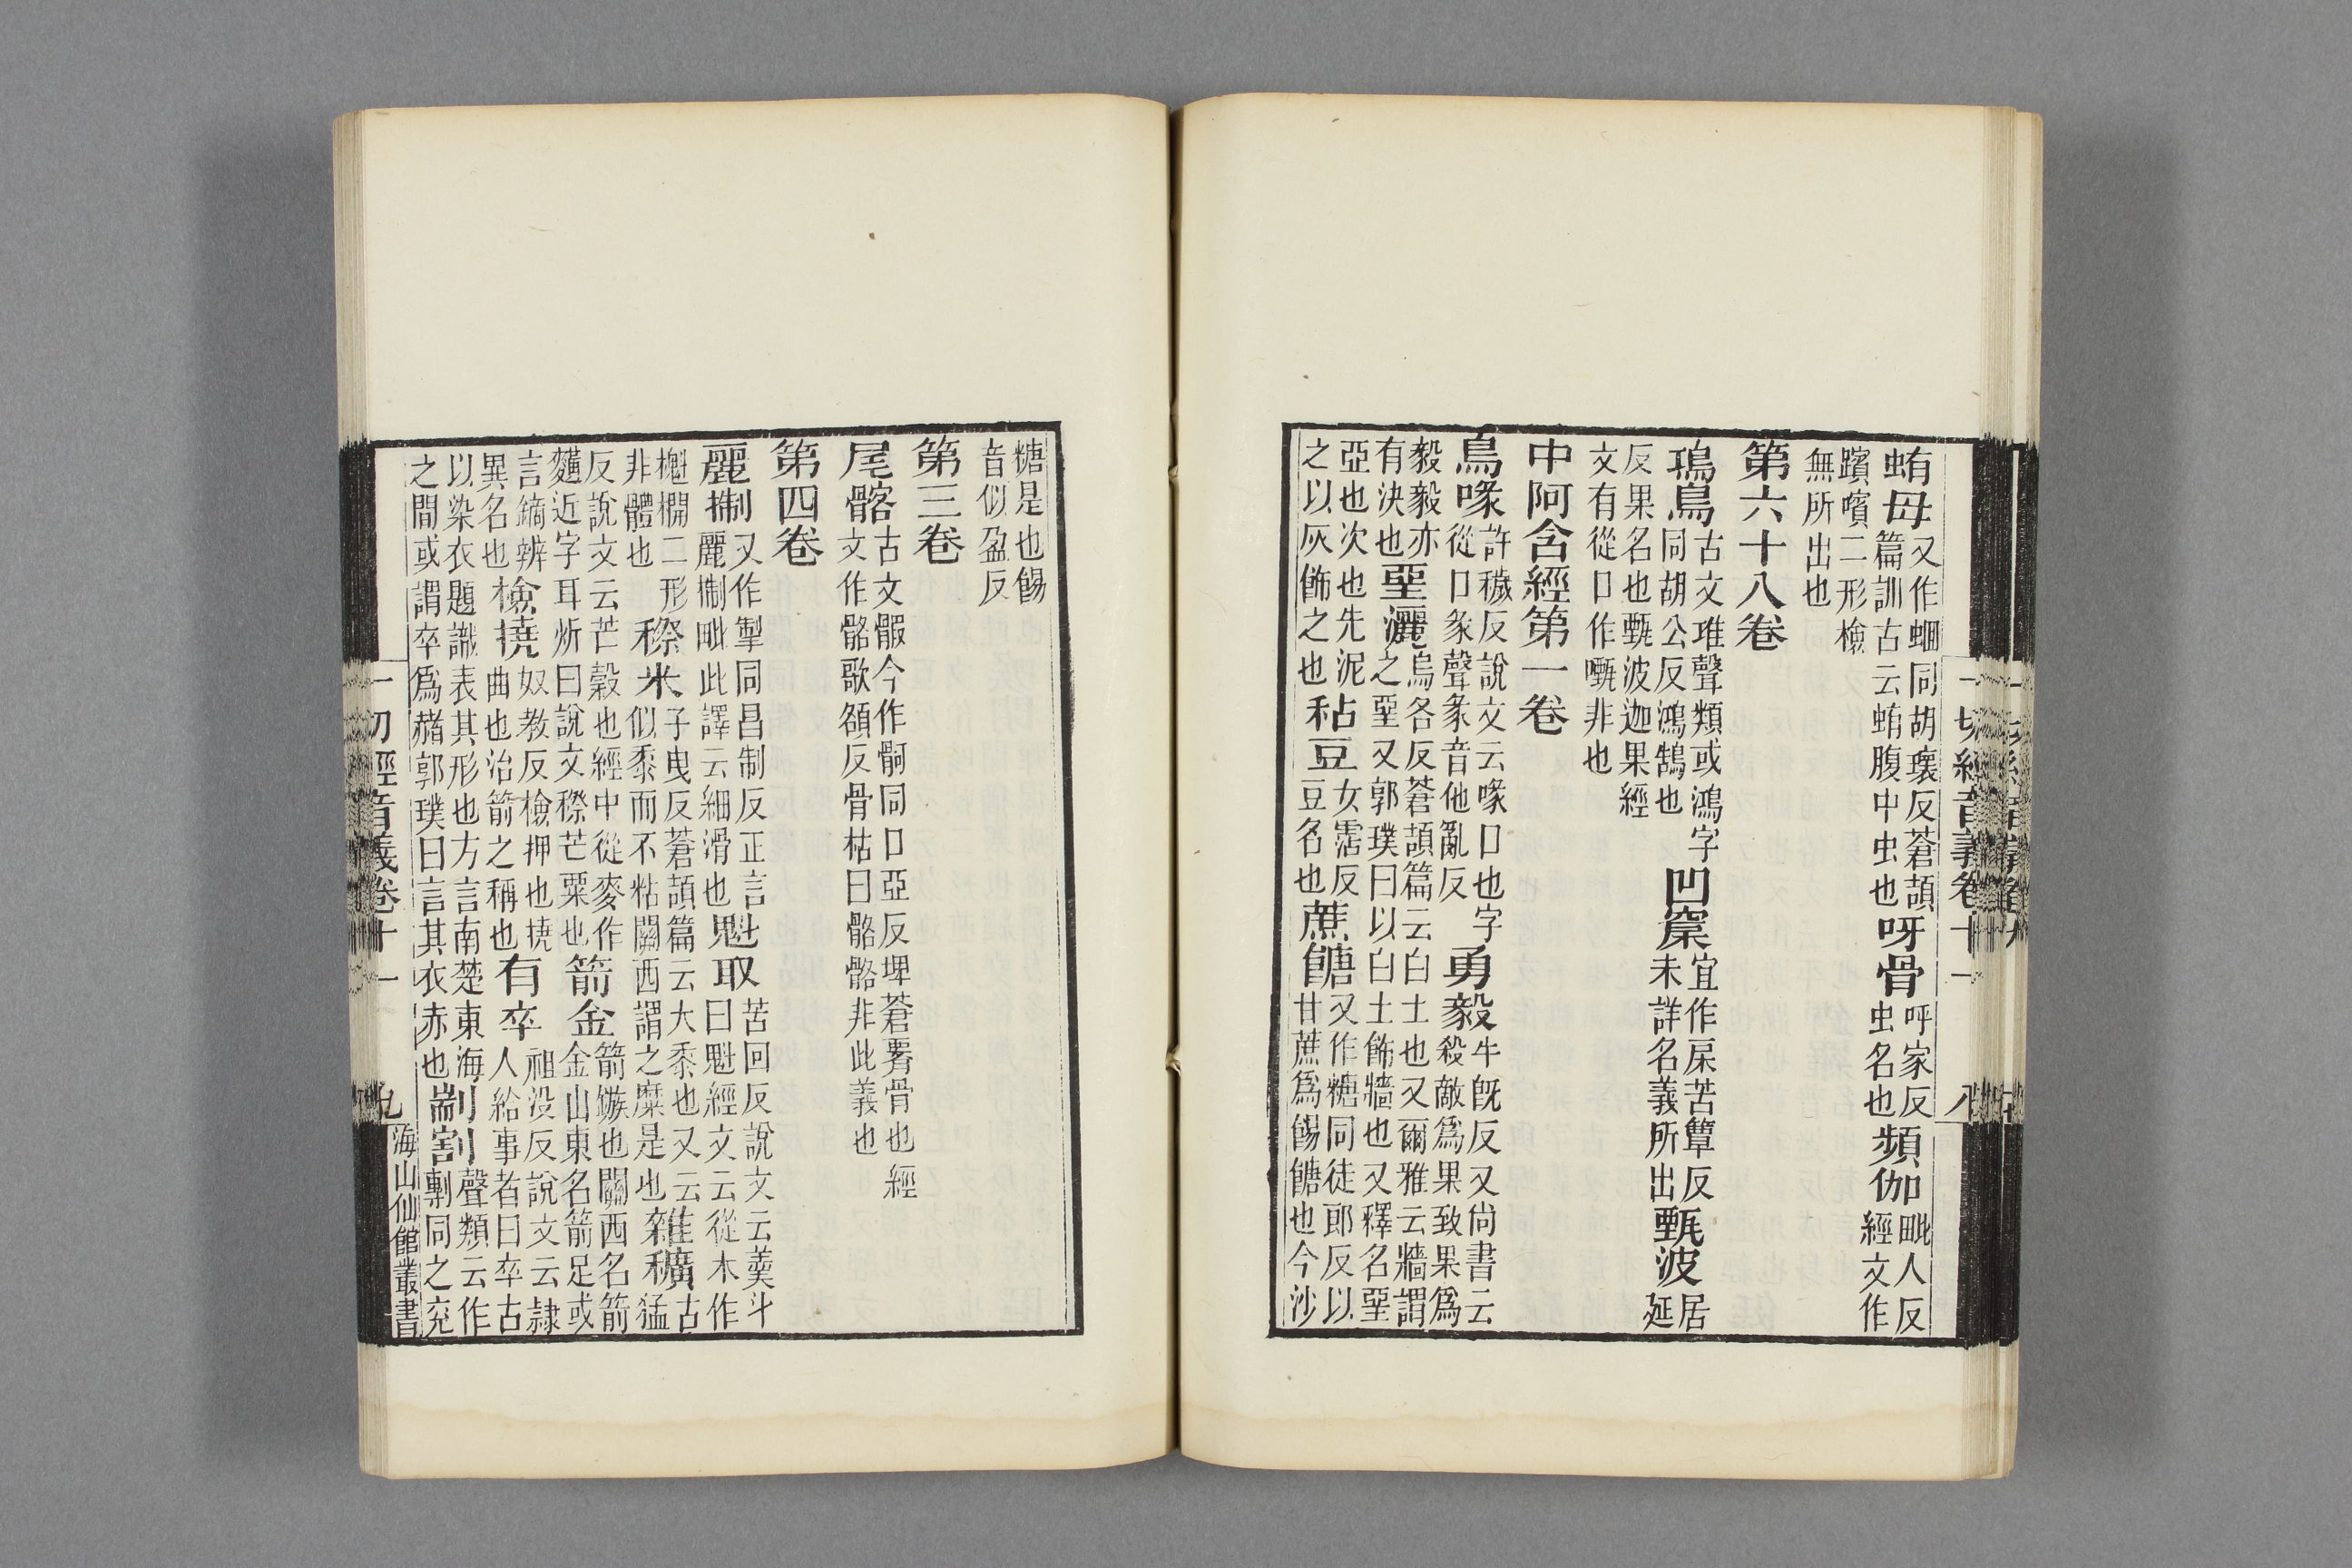 蛕母又作蛔同胡瓌反蒼頡篇訓古云蛕腹中虫也呀骨呼家反虫名也頻伽毗人反經文作
嚬二形檢無所出也
第六十八卷
鳥古文琟聲類或鴻字同胡公反鴻鵠也凹窠宜作苦簟反未詳名義所出甄波居延
反果名也甄波迦果經文有從口作㗔非也
中阿含經第一卷
鳥喙許穢反說文云喙口也字從口彖聲彖音他亂反勇毅牛旣反又尙書云殺敵爲果致果爲
毅毅亦有決也堊灑烏各反蒼頡篇云白土也又爾雅云牆謂之堊又郭璞曰以白土飾牆也又釋名堊
亞也次也先泥之以灰飾之也秥豆女霑反豆名也蔗餹又作糖同徒郎反以甘蔗爲餳餹也今沙
一切經音義卷十一
八
糖是也餳音似盈反
第三卷
尾髂古文今作同口亞反埤蒼骨也經文作骼歌頟反骨枯曰骼骼非此義也
第四卷
麗㨹又作掣同昌制反正言麗㨹毗此譯云細滑也魁取苦回反說文云羹斗曰魁經文云從木作
櫆棢二形非體也穄米子曳反蒼頡篇云大黍也又云似黍而不粘關西謂之穈是也雜穬古猛
反說文云芒穀也經中從麥作䵃近字耳炘曰說文穄芒粟也箭金箭鏃也關西名箭金山東名箭足或
言鏑辨異名也檢撓奴教反檢押也撓曲也治箭之稱也有卒祖沒反說文云隷人給事者曰卒古
以染衣題識表其形也方言南楚東海之間或謂卒爲赭郭璞曰言其衣赤也剬割聲類云作剸同之兗
一切經音義卷十一
九
海山仙館叢書